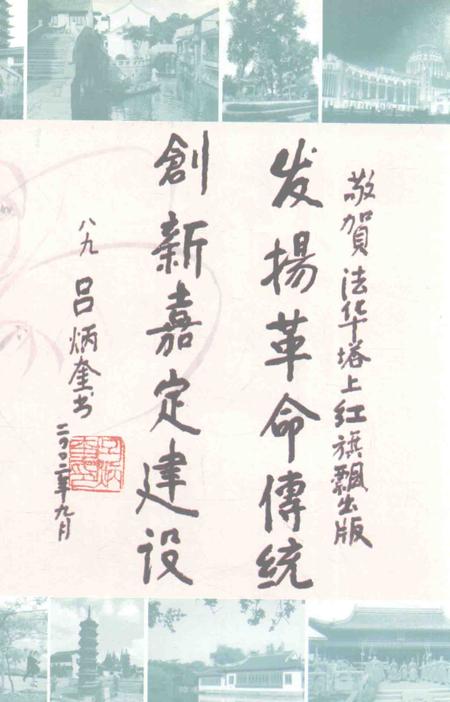 敬賀法华塔上红旗飘出版
发揚革命傳統
創新嘉定建设
八九 吕炳奎书
二〇〇二年九月